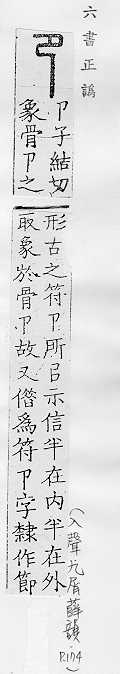 六書正譌
卪
卪子結切
象骨卪之
形古之符卪所㠯示信半在內半在外
取象於骨卪故又借爲符卪字隸作節
(入聲九屑薛韻 P.174)